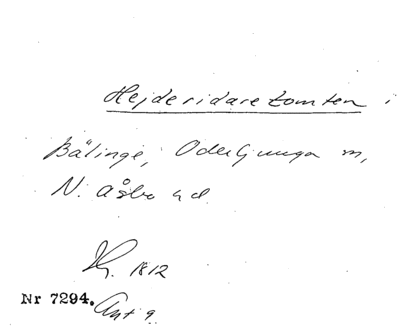 Hejderidaretomten i
Bälinge, Oderljunga m,
N. Åsbo hd.
1812
Nr 7294. Ant 9